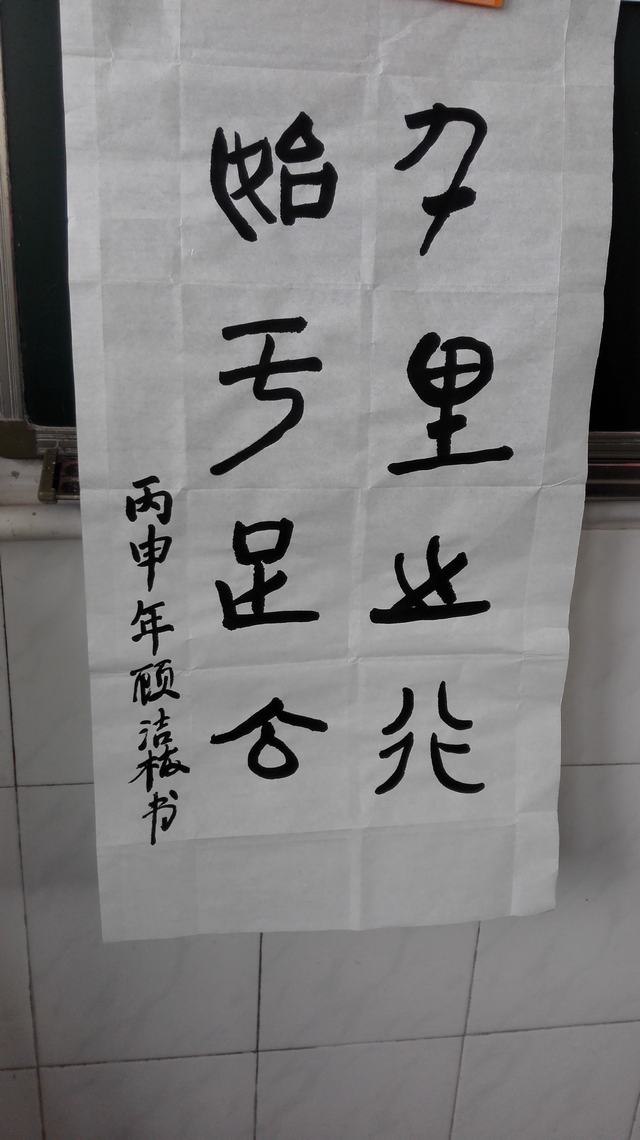 千里之行
始于足下
丙申年顾洁梅书